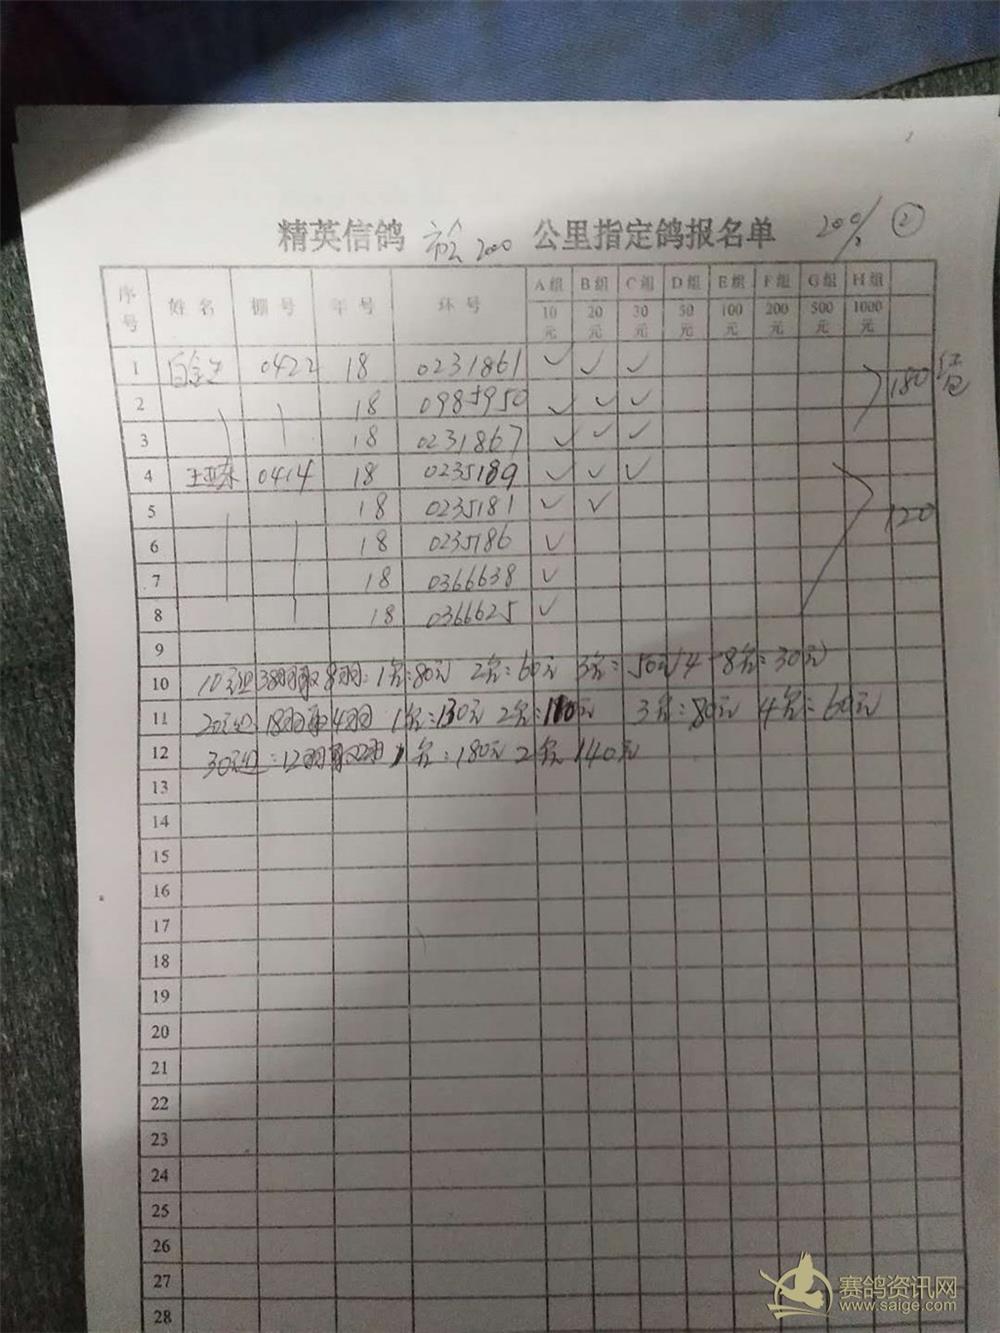 精英信鸽 市会 200 公里指定鸽报名单 200/ ②
序号 姓名 棚号 年号 环号 A组 B组 C组 D组 E组 F组 G组 H组
10元 20元 30元 50元 100元 200元 500元 1000元
1 0422 18 0231861 ✓ ✓ ✓
2 18 0985950 ✓ ✓ ✓ 180
3 18 0231867 ✓ ✓ ✓
4 0414 18 0235189 ✓ ✓ ✓
5 18 0235181 ✓ ✓ 120
6 18 0235186 ✓
7 18 0366638 ✓
8 18 0366625 ✓
9
10 10元组38羽取8羽:1名:80元 2名:60元 3名:50元(4-8名:30元)
11 20元组18羽取4羽 1名:130元 2名:110元 3名:80元 4名:60元
12 30元组:12羽取2羽 1名:180元 2名 140元
13
14
15
16
17
18
19
20
21
22
23
24
25
26
27
28
赛鸽资讯网
www.saige.com